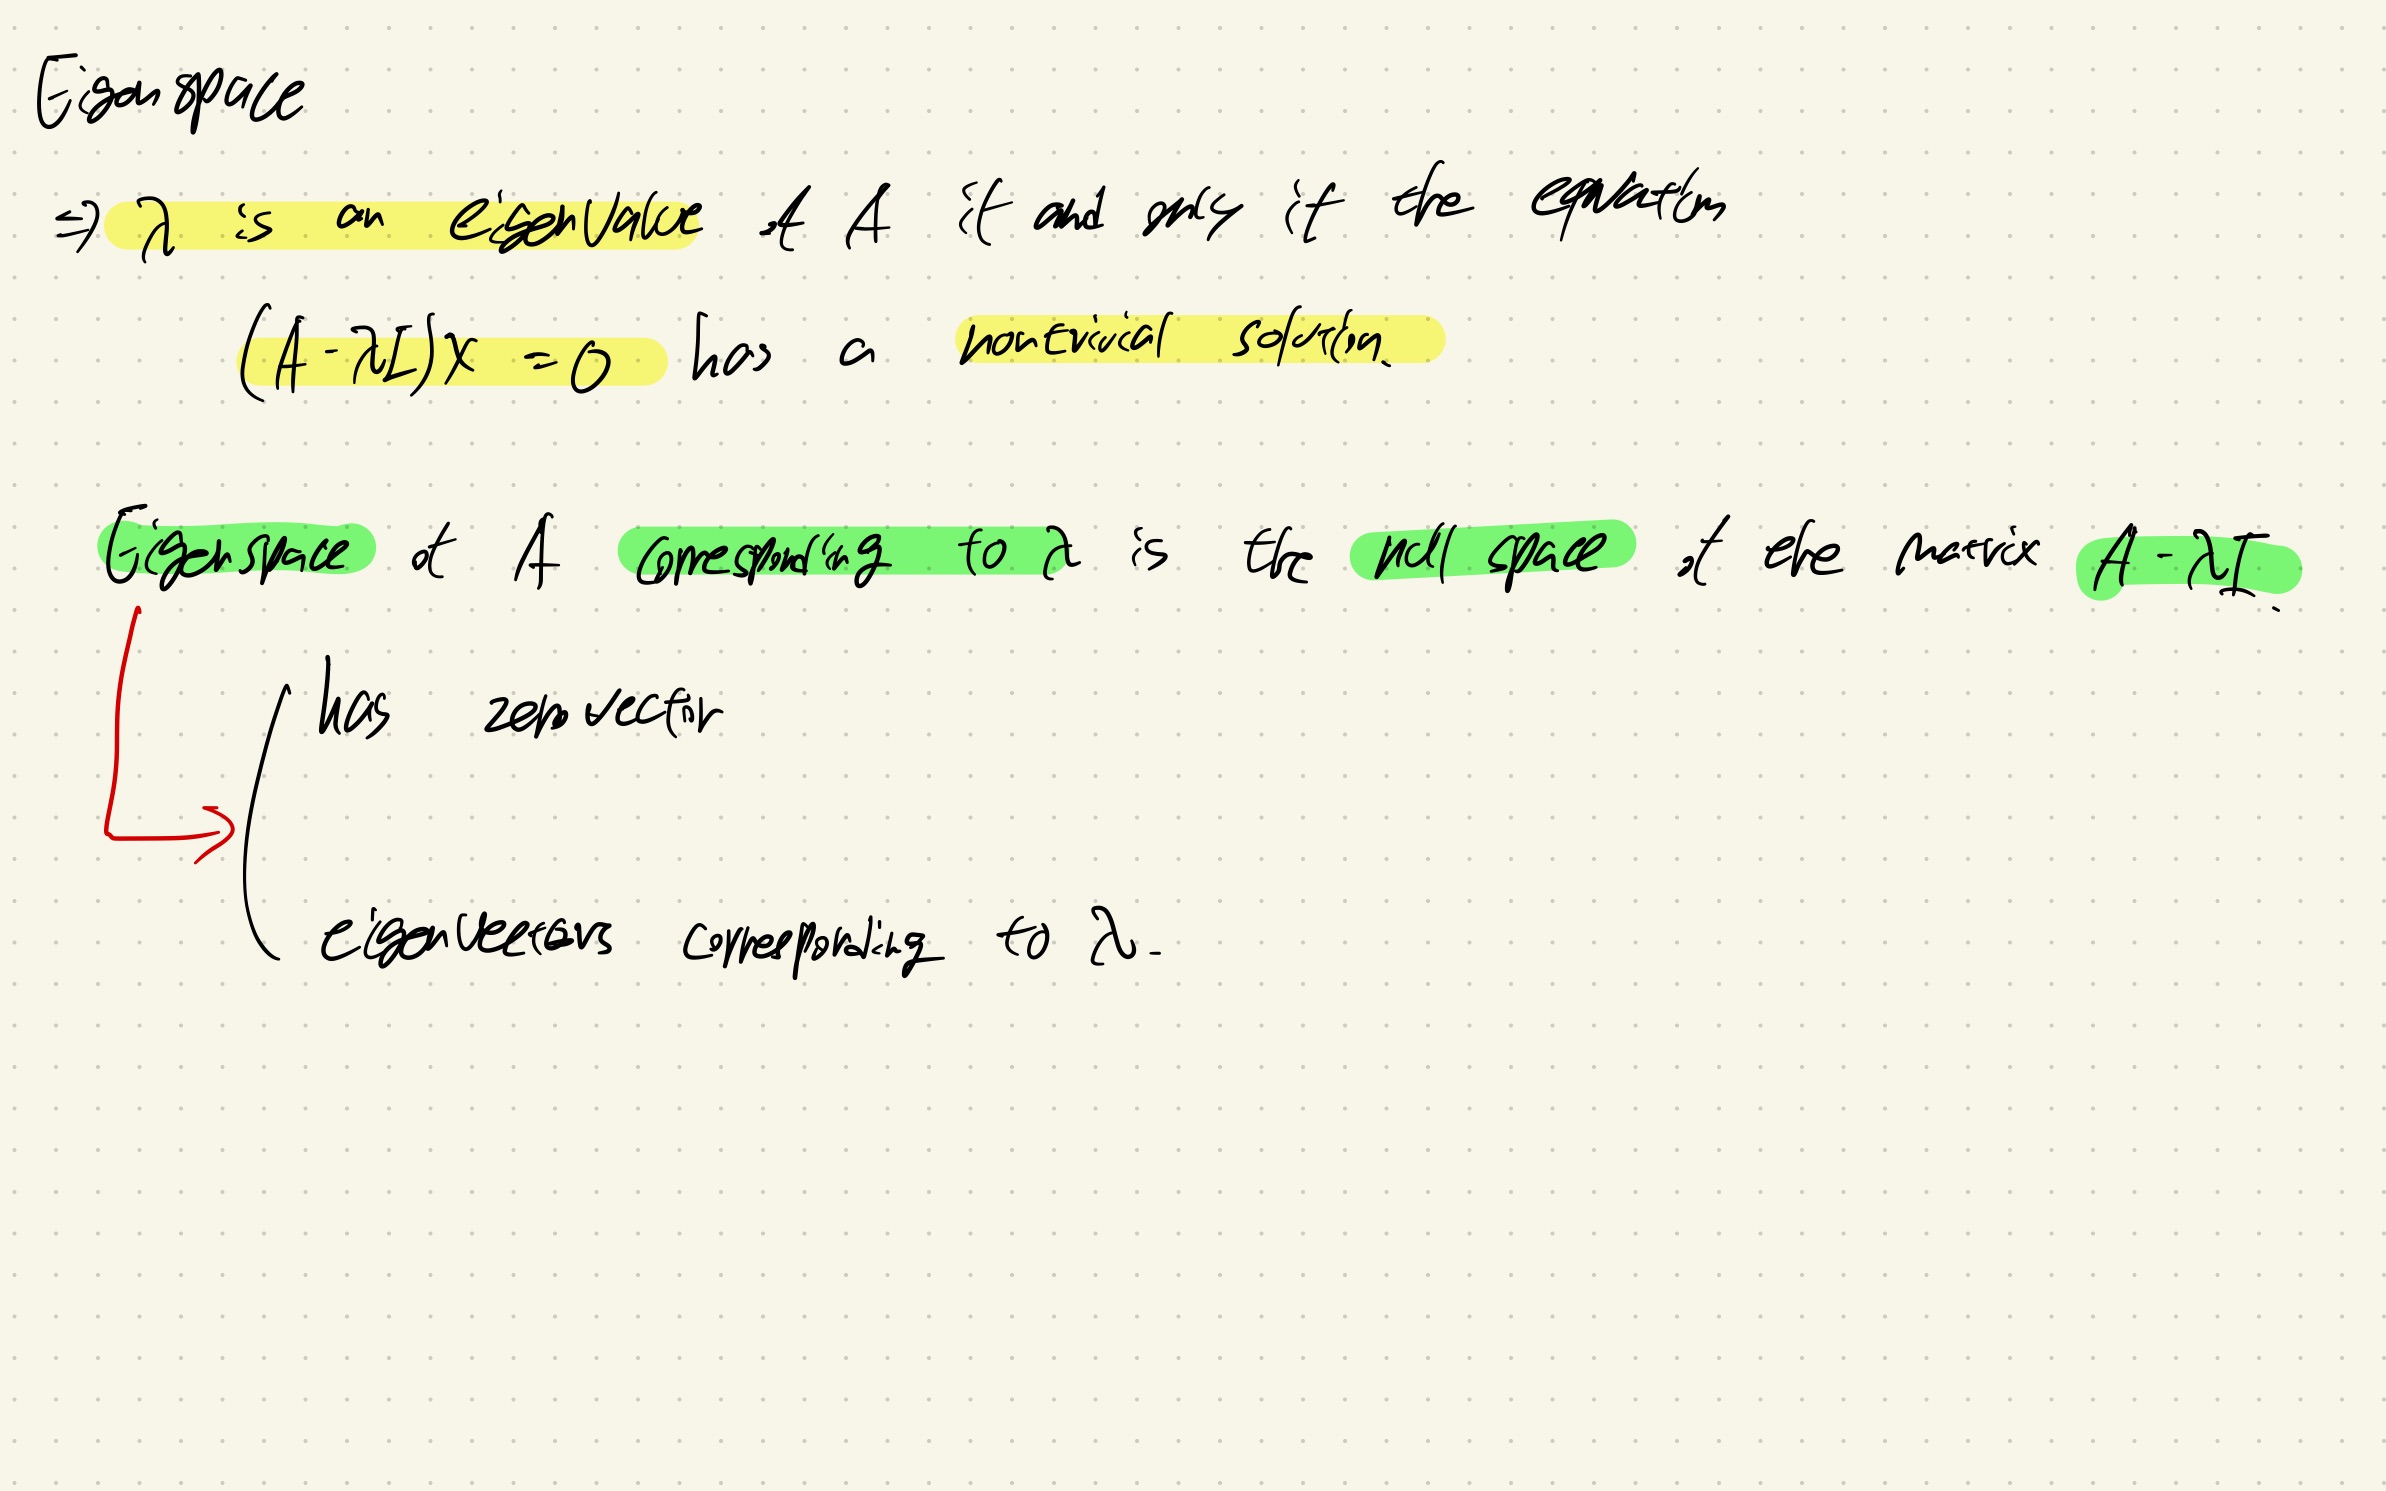 Eigenspace
⇒ λ is an eigenvalue of A if and only if the equation
(A - λI)x = 0 has a nontrivial solution.
Eigenspace of A corresponding to λ is the null space of the matrix A - λI.
has zero vector
eigenvectors corresponding to λ.